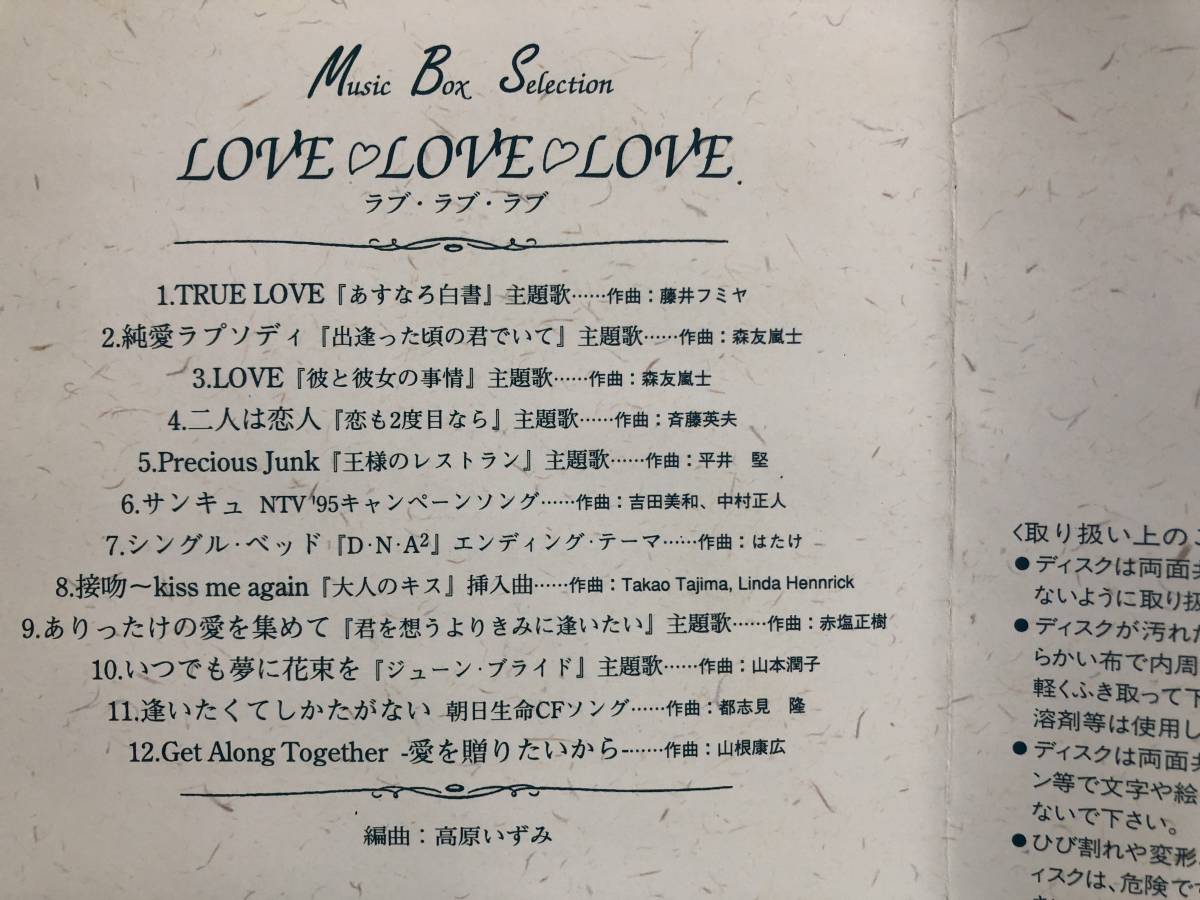 Music Box Selection
LOVE♡LOVE♡LOVE
ラブ・ラブ・ラブ
1.TRUE LOVE『あすなろ白書』主題歌……作曲：藤井フミヤ
2.純愛ラプソディ『出逢った頃の君でいて』主題歌……作曲：森友嵐士
3.LOVE『彼と彼女の事情』主題歌……作曲：森友嵐士
4.二人は恋人『恋も2度目なら』主題歌……作曲：斉藤英夫
5.Precious Junk『王様のレストラン』主題歌……作曲：平井　堅
6.サンキュ NTV '95キャンペーンソング……作曲：吉田美和、中村正人
7.シングル・ベッド『D・N・A²』エンディング・テーマ……作曲：はたけ
8.接吻～kiss me again『大人のキス』挿入曲……作曲：Takao Tajima, Linda Hennrick
9.ありったけの愛を集めて『君を想うよりきみに逢いたい』主題歌……作曲：赤塩正樹
10.いつでも夢に花束を『ジューン・ブライド』主題歌……作曲：山本潤子
11.逢いたくてしかたがない 朝日生命CFソング……作曲：都志見　隆
12.Get Along Together -愛を贈りたいから-……作曲：山根康広
編曲：高原いずみ
〈取り扱い上の
●ディスクは両面共
ないように取り扱
●ディスクが汚れた
らかい布で内周
軽くふき取って下
溶剤等は使用し
●ディスクは両面共
ン等で文字や絵
ないで下さい。
●ひび割れや変形
ィスクは、危険です